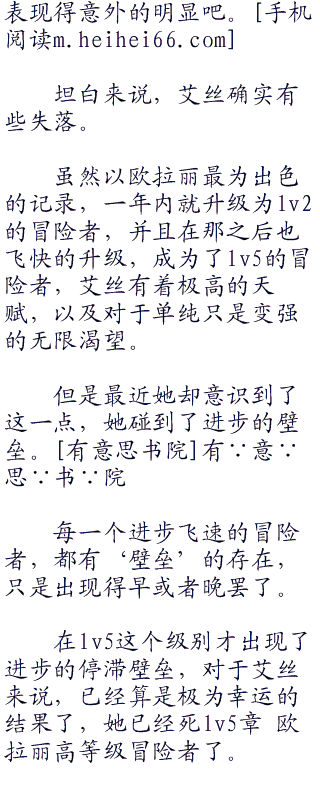 表现得意外的明显吧。[手机
阅读m.heihei66.com]
坦白来说，艾丝确实有
些失落。
虽然以欧拉丽最为出色
的记录，一年内就升级为lv2
的冒险者，并且在那之后也
飞快的升级，成为了lv5的冒
险者，艾丝有着极高的天
赋，以及对于单纯只是变强
的无限渴望。
但是最近她却意识到了
这一点，她碰到了进步的壁
垒。[有意思书院]有∵意∵
思∵书∵院
每一个进步飞速的冒险
者，都有‘壁垒’的存在，
只是出现得早或者晚罢了。
在lv5这个级别才出现了
进步的停滞壁垒，对于艾丝
来说，已经算是极为幸运的
结果了，她已经死lv5章 欧
拉丽高等级冒险者了。